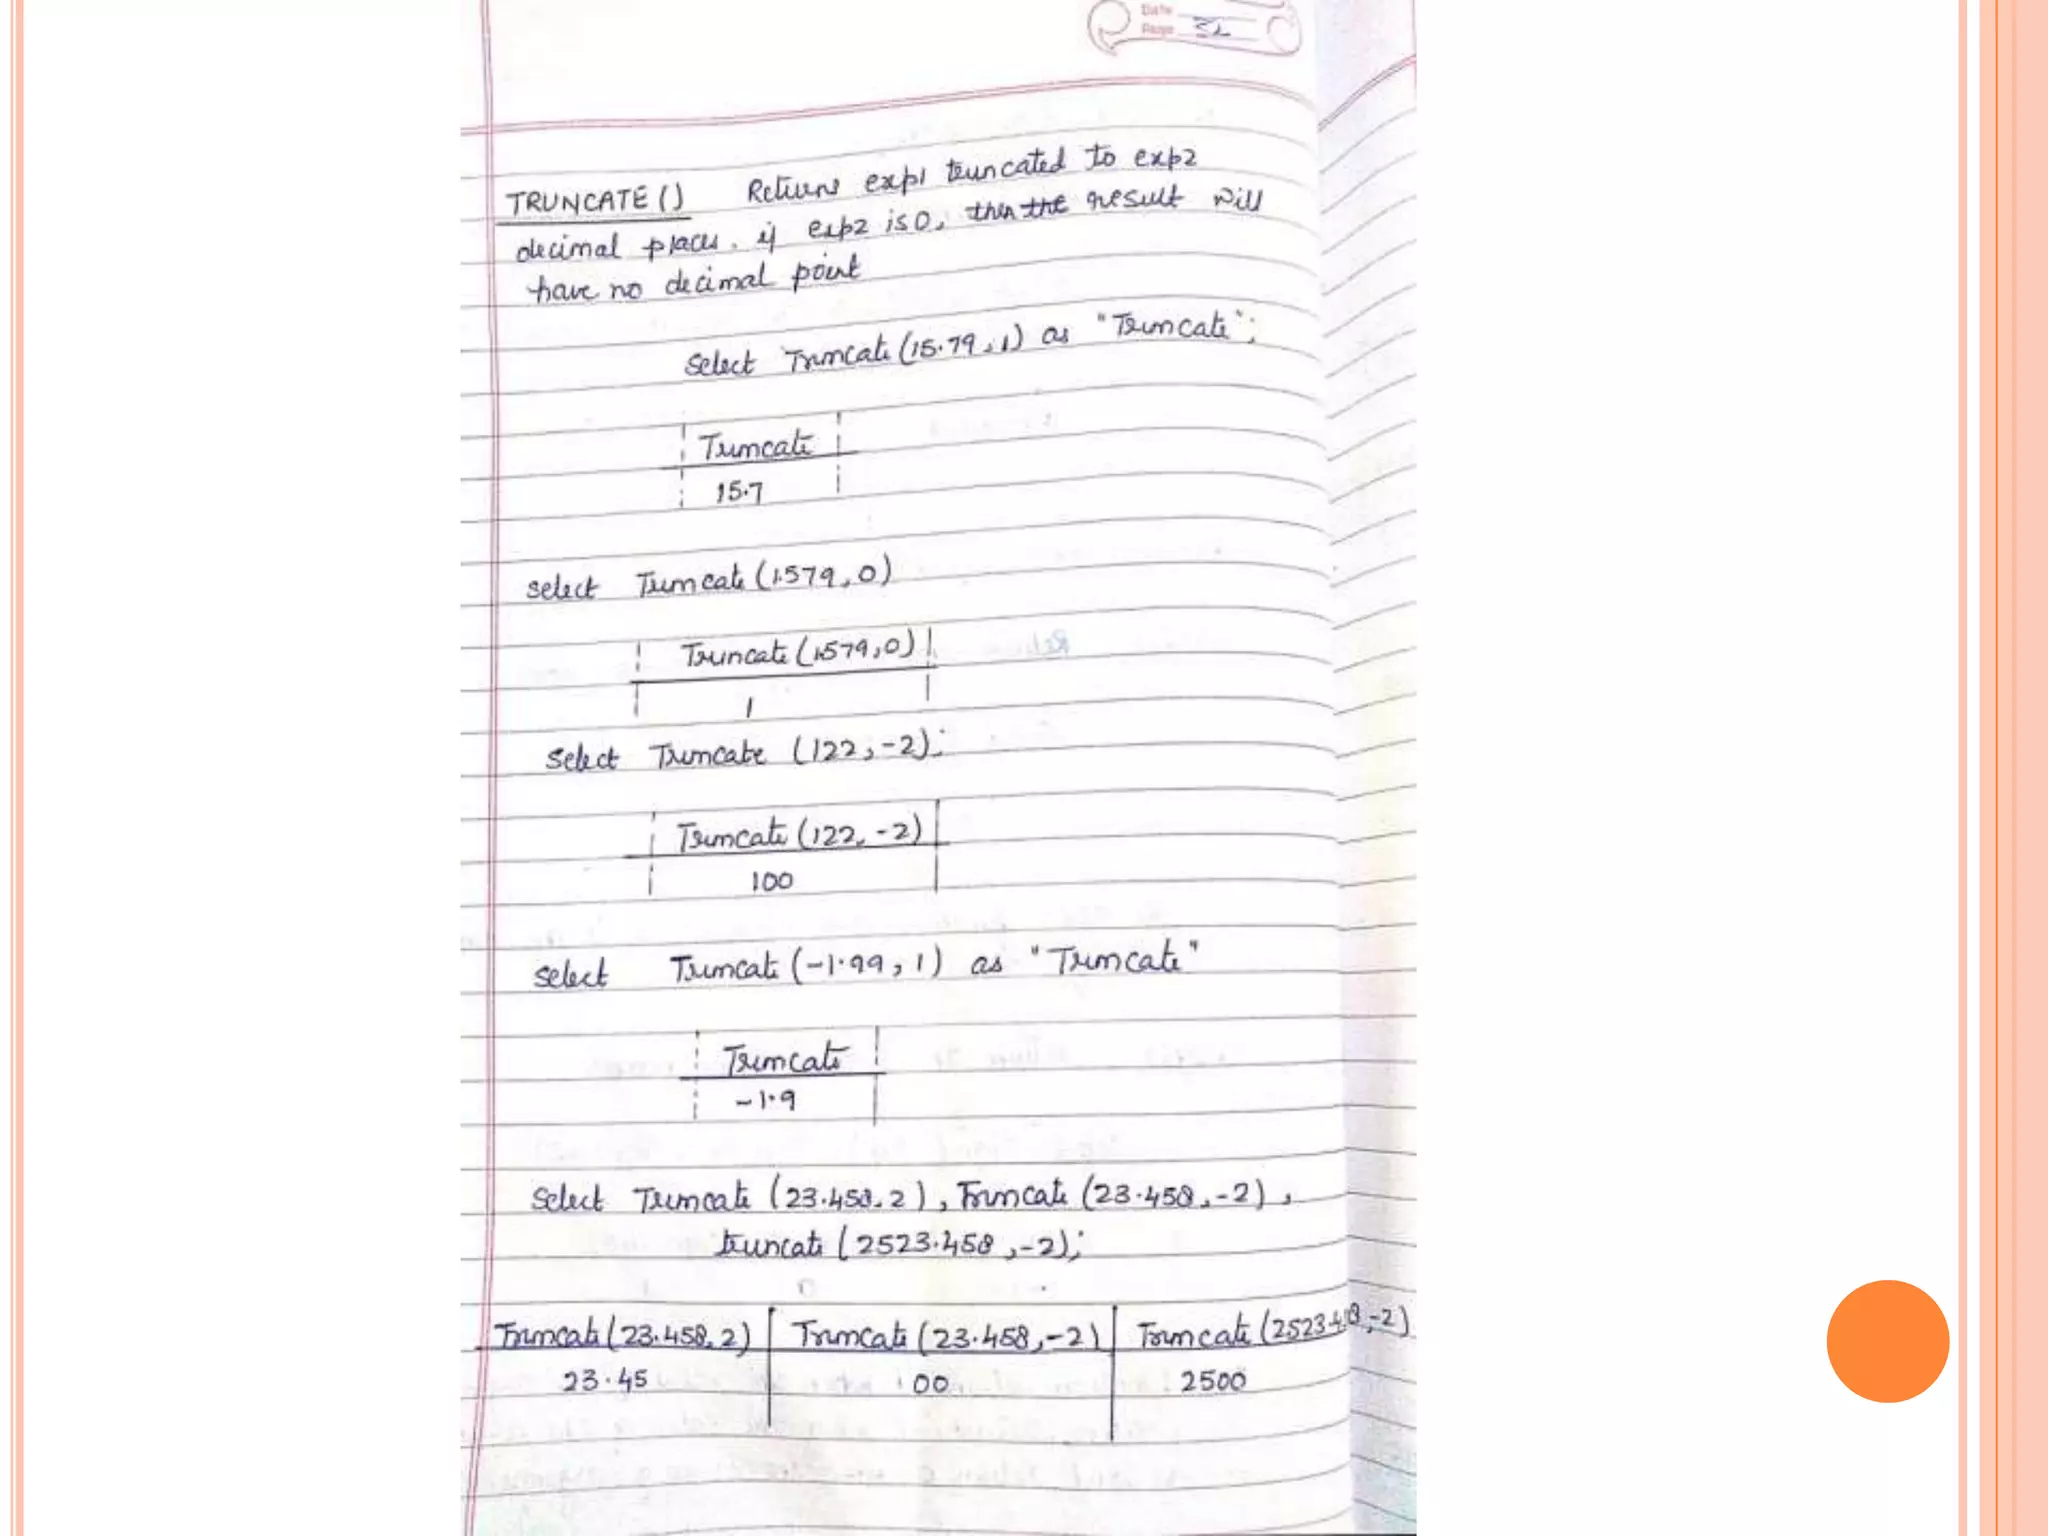 Date
Page 32
TRUNCATE() Returns exp1 truncated to exp2
decimal places. if exp2 is 0, then the result will
have no decimal point
Select Truncate (15.79,1) as "Truncate";
Truncate
15.7
Select Truncate (1.579,0)
Truncate (1.579,0)
1
Select Truncate (122,-2);
Truncate (122,-2)
100
Select Truncate (-1.99,1) as "Truncate"
Truncate
-1.9
Select Truncate (23.458,2), Truncate (23.458,-2),
truncate (2523.458,-2);
Truncate (23.458,2) Truncate (23.458,-2) Truncate (2523.458,-2)
23.45 00 2500